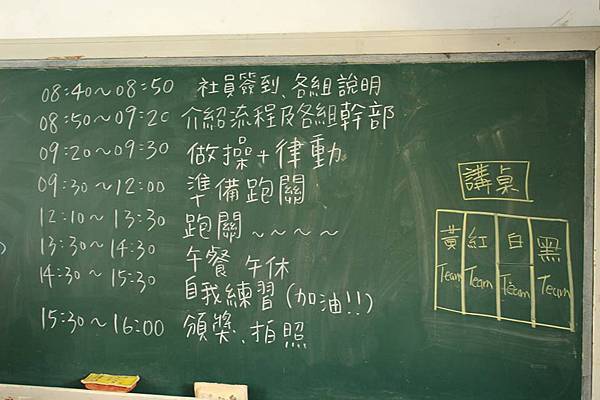 08:40~08:50 社員簽到、各組說明
08:50~09:20 介紹流程及各組幹部
09:20~09:30 做操+律動
09:30~12:00 準備跑關
12:10~13:30 跑關~~~~
13:30~14:30 午餐 午休
14:30~15:30 自我練習(加油!!)
15:30~16:00 頒獎、拍照
講桌
黃 紅 白 黑
Team Team Team Team